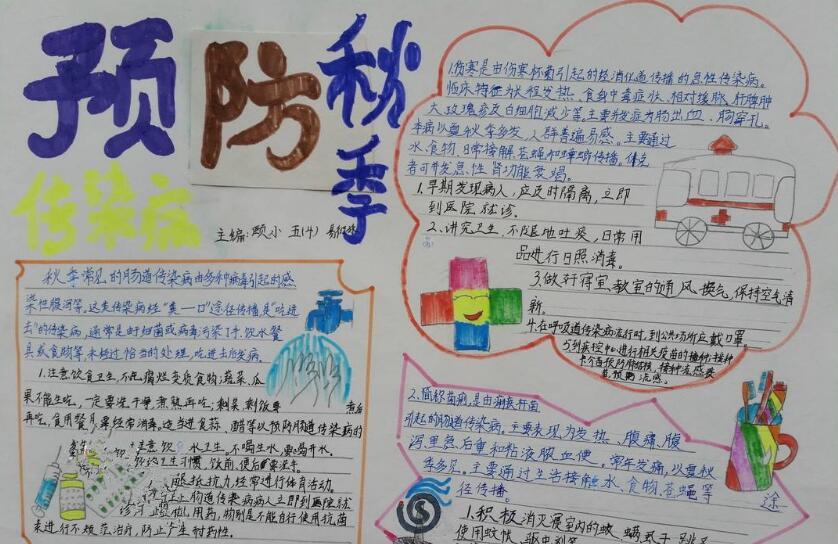 预防秋季
传染病
主编:顾小 五(4)
秋季常见的肠道传染病由多种病毒引起的感
染性腹泻等。这类传染病经"粪一口"途径传播,是"吃进
去"的传染病,通常是由细菌或病毒污染了手、饮水、餐
具或食物等,未经过恰当的处理,吃进去后发病。
1.注意饮食卫生,不吃腐烂变质食物,蔬菜、瓜
果不能生吃,一定要洗干净,煮熟再吃;剩菜剩饭要 煮后
再吃,食用餐具要经常消毒,适当进食蒜、醋等以预防肠道传染病的
注意饮 水卫生,不喝生水,要喝开水。
卫生习惯,饭前、便后要洗手。
抵抗力,经常进行体育活动。
上肠道传染病病人立即到医院就
用药,特别是不能自行使用抗菌
来进行不规范治疗,防止产生耐药性。
1.伤寒是由伤寒杆菌引起的经消化道传播的急性传染病。
临床特征为长程发热、食身中毒症状、相对缓脉、肝脾肿
大、玫瑰疹及白细胞减少等。主要并发症为肠出血、肠穿孔。
本病以夏秋季多发,人群普遍易感。主要通过
水、食物、日常接触、苍蝇和蟑螂传播。
者可并发急性肾功能衰竭。
1.早期发现病人,应及时隔离,立即
到医院就诊。
2.讲究卫生,不随地吐痰,日常用
品进行日照消毒。
3.做好寝室、教室的通风换气,保持空气清
新。
4.在呼吸道传染病流行时,到公共场所应戴口罩。
5.到疾控中心进行相关疫苗的接种;接种
卡介苗预防肺结核,接种流感疫
苗,预防流感。
2.简称菌痢,是由痢疾杆菌
引起的肠道传染病,主要表现为发热、腹痛、腹
泻里急后重和粘液脓血便。常年发病,以夏秋
季多见。主要通过生活接触、水、食物、苍蝇等 途
径传播。
1.积极消灭寝室内的蚊、螨
使用蚊帐、驱虫剂等